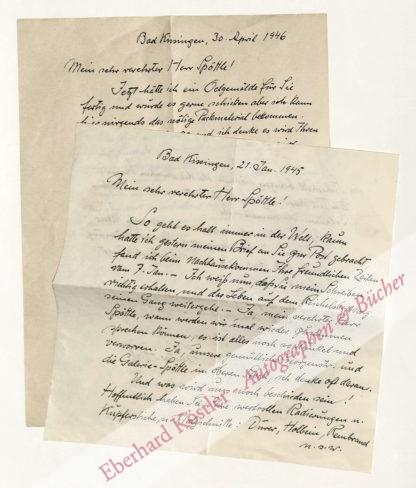 Bad Kissingen, 30. April 1946
Mein sehr verehrter Herr Spöttle!
Jetzt hätte ich ein Oelgemälde für Sie
fertig und würde es gerne schicken aber ich kann
hier nirgends das nötige Packmaterial bekommen.
und ich denke es wird Ihnen
Bad Kissingen, 21. Jan. 1945
Mein sehr verehrter Herr Spöttle!
So geht es halt immer in der Welt, kaum
hatte ich gestern meinen Brief an Sie zur Post gebracht
fand ich beim Nachhausekommen Ihre freundlichen Zeilen
vom 7. Jan. — Ich weiß nun, daß Sie mein Schreiben
richtig erhalten und das Leben auf dem
seinen Gang weitergeht. — Ja, mein verehrter Herr
Spöttle, wann werden wir mal wieder zusammen
sprechen können, es ist alles noch so
verworren. Ja, unsere gemütlichen und
die Galerie-Spöttle in ich denke oft daran.
Und was wird uns noch beschieden sein!
Hoffentlich haben Sie Ihre wertvollen Radierungen u.
Kupferstiche, u. Holzschnitte: Dürer, Holbein, Rembrand
u.s.w.
Eberhard Köstler - Autographen & Bücher